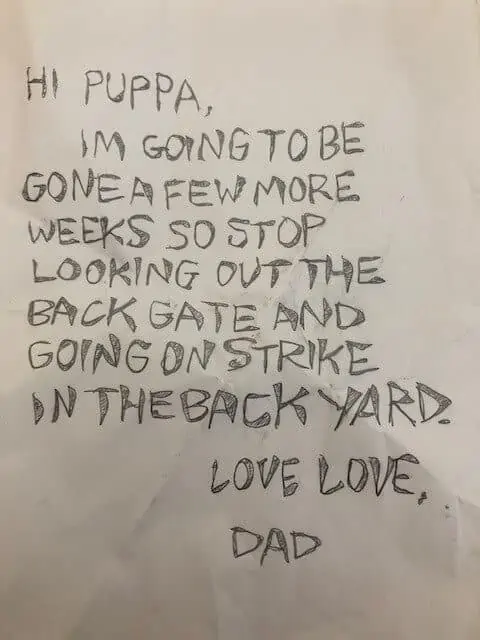 HI PUPPA,
IM GOING TO BE
GONE A FEW MORE
WEEKS SO STOP
LOOKING OUT THE
BACK GATE AND
GOING ON STRIKE
IN THE BACK YARD.
LOVE LOVE,
DAD